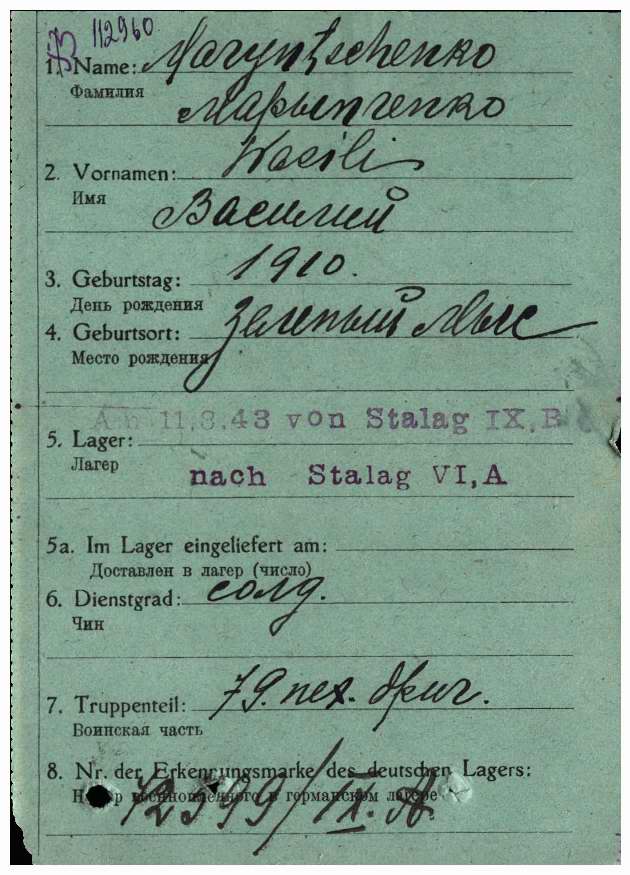 112960
1. Name: Maryntschenko
Фамилия
Марынченко
2. Vornamen: Wasili
Имя
Василий
3. Geburtstag: 1910.
День рождения
4. Geburtsort: Зеленый Мыс
Место рождения
Am 11.8.43 von Stalag IX,B
5. Lager:
Лагер
nach Stalag VI,A
5a. Im Lager eingeliefert am:
Доставлен в лагер (число)
6. Dienstgrad: солд.
Чин
7. Truppenteil: 79. пех. бриг.
Воинская часть
8. Nr. der Erkennungsmarke des deutschen Lagers:
Номер военнопленного в германском лагере
/IX.